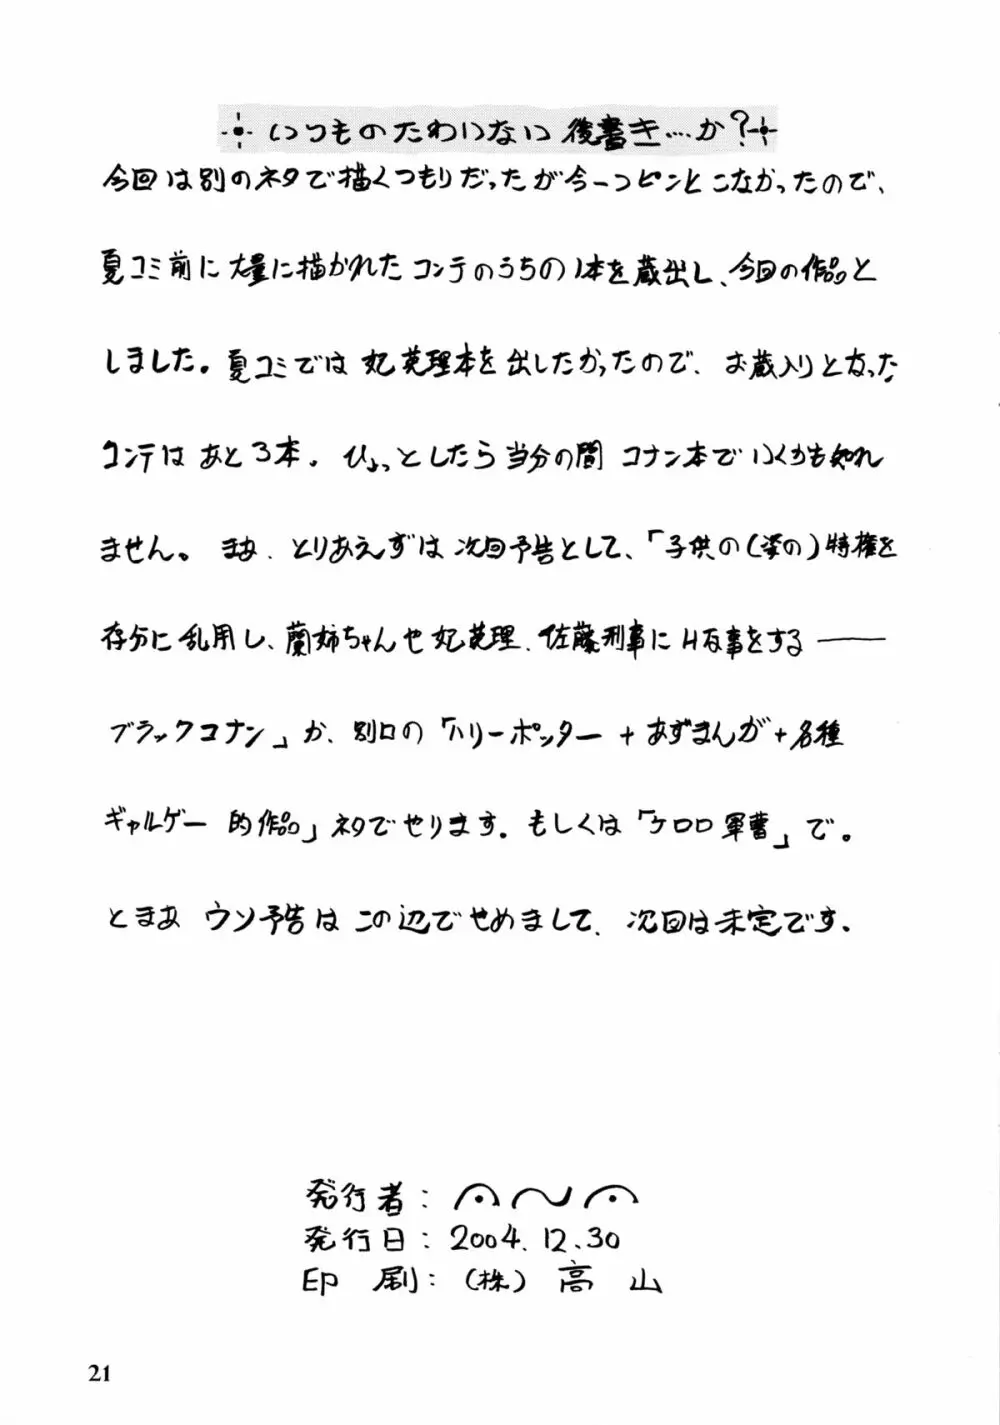 いつものたわいない後書き…か?
今回は別のネタで描くつもりだったが今一つピンとこなかったので、
夏コミ前に大量に描かれたコンテのうちの1本を蔵出し、今回の作品と
しました。夏コミでは妃英理本を出したかったので、お蔵入りとなった
コンテはあと3本。ひょっとしたら当分の間コナン本でいくかも知れ
ません。まあ、とりあえずは次回予告として、「子供の(姿の)特権を
存分に乱用し、蘭姉ちゃんや妃英理、佐藤刑事にHな事をする――
ブラックコナン」か、別口の「ハリーポッター+あずまんが+各種
ギャルゲー的作品」ネタでやります。もしくは「ケロロ軍曹」で。
とまあウソ予告はこの辺でせめまして、次回は未定です。
発行者:
発行日:2004.12.30
印刷:(株)高山
21